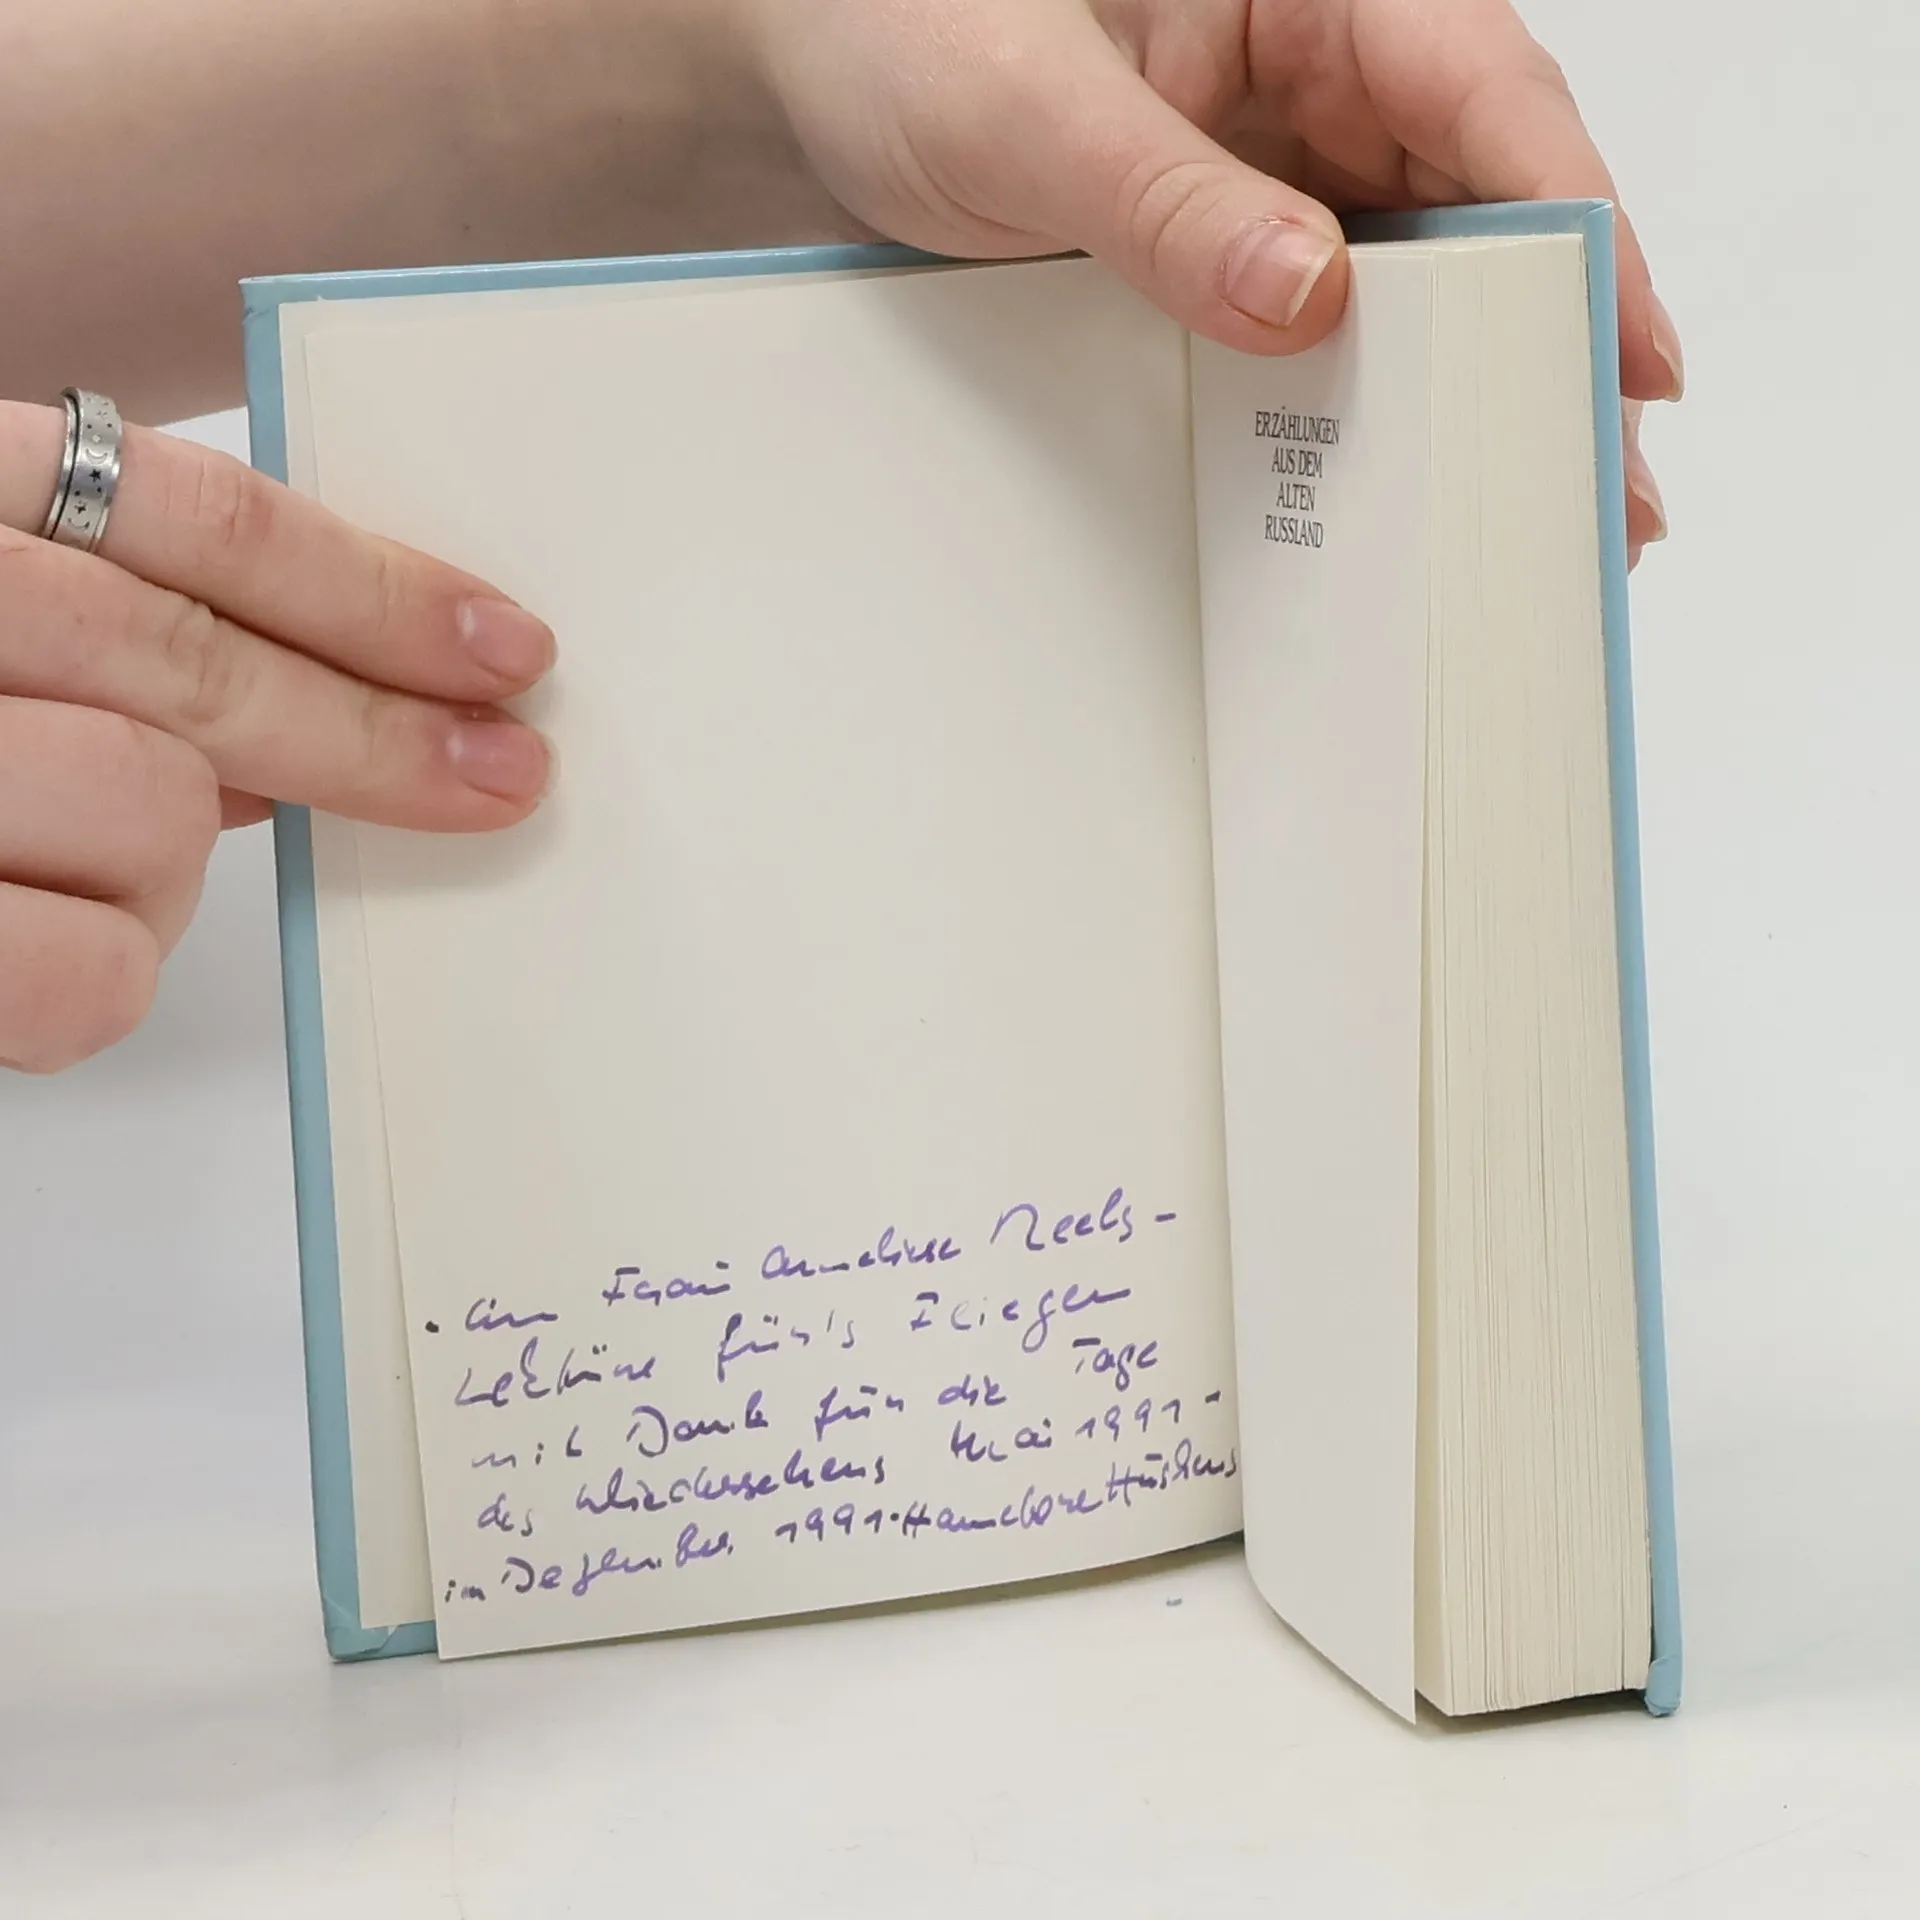 An Frau Anneliese Neels -
Lektüre für's Fliegen
mit Dank für die Tage
des Wiedersehens Mai 1991 -
im Dezember 1991 · Hannelore
ERZÄHLUNGEN
AUS DEM
ALTEN
RUSSLAND